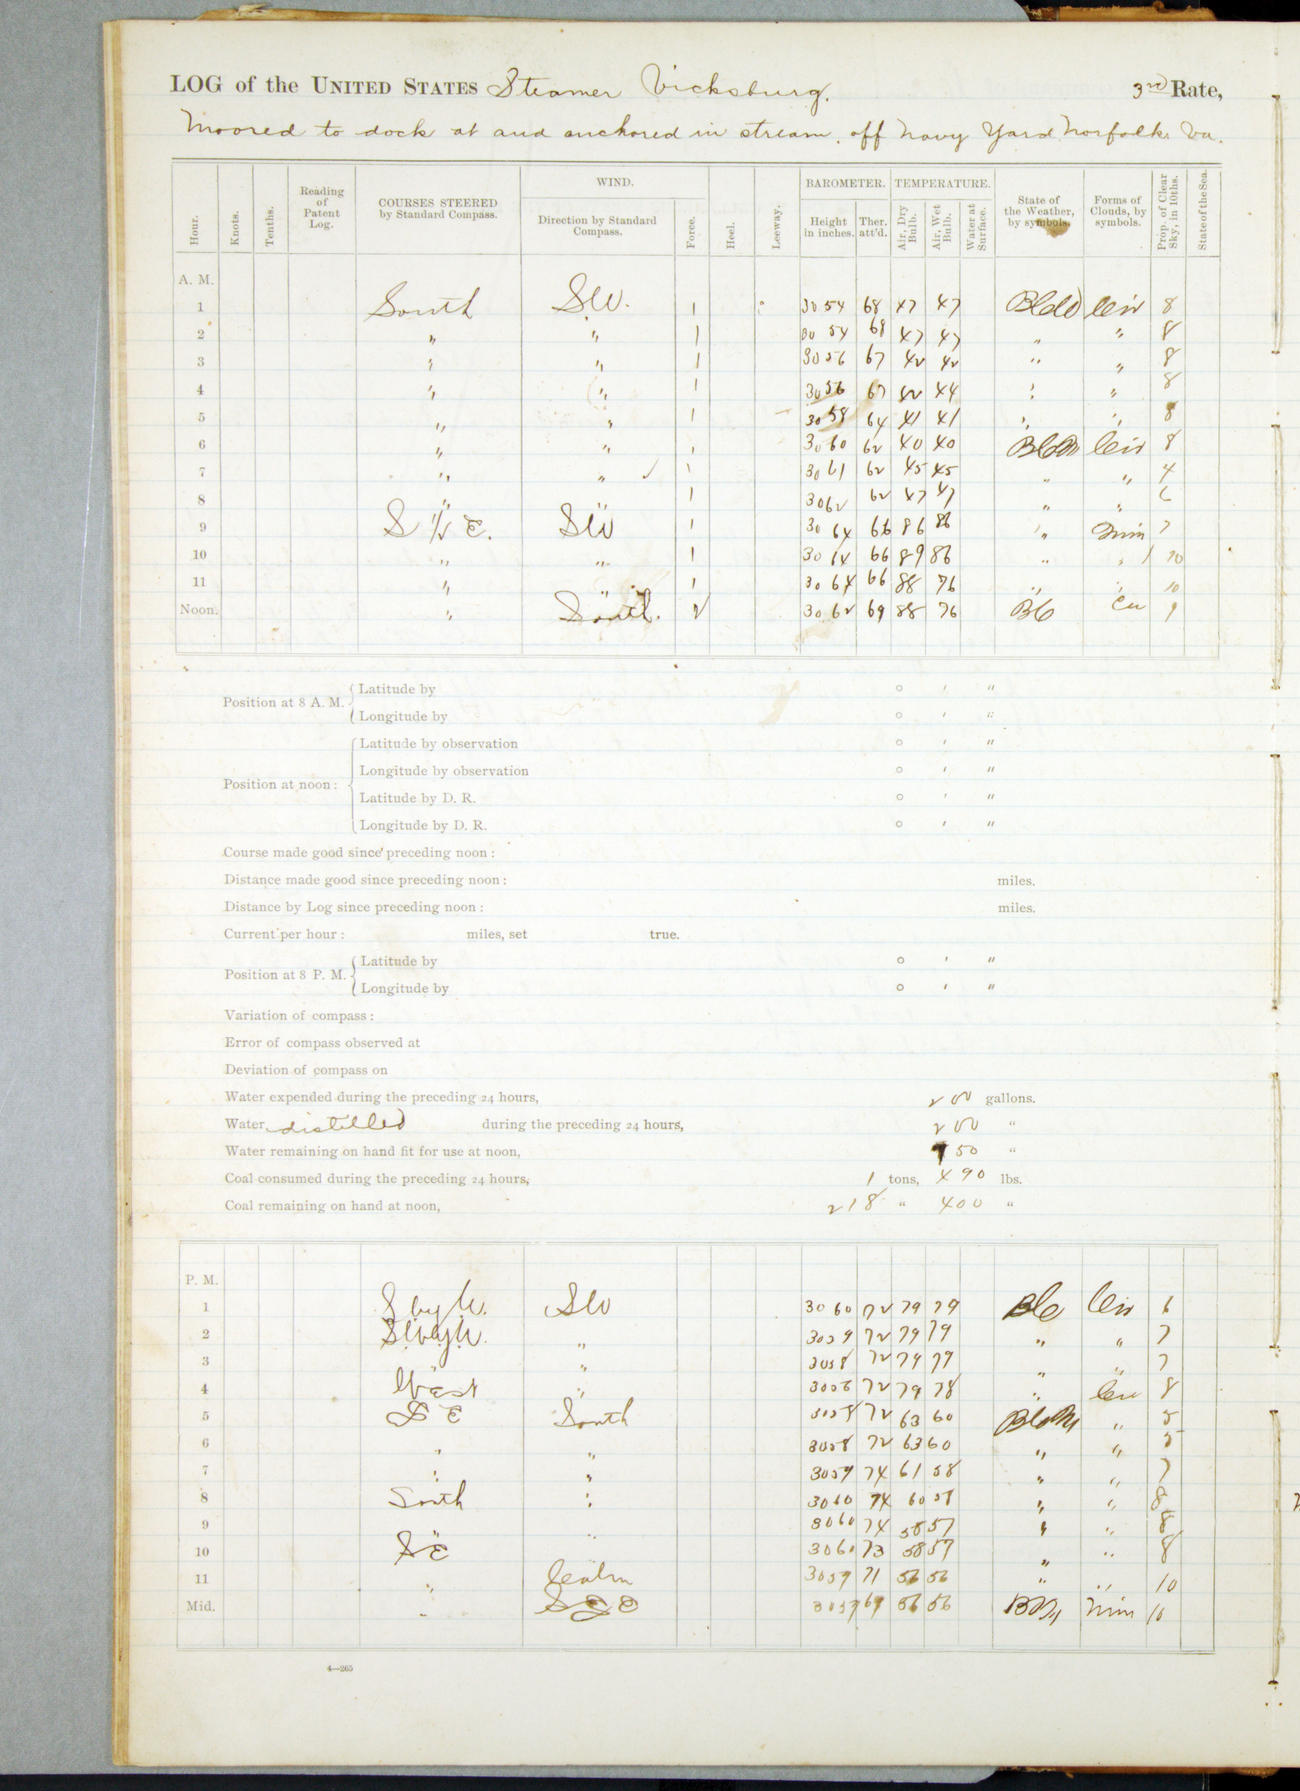 LOG of the UNITED STATES Steamer Vicksburg. 3rd Rate,
Moored to dock at and anchored in stream off Navy Yard Norfolk Va.
Hour. Knots. Tenths. Reading of Patent Log. COURSES STEERED by Standard Compass. WIND. Direction by Standard Compass. Force. Heel. Leeway. BAROMETER. Height in inches. Ther. att'd. TEMPERATURE. Air, Dry Bulb. Air, Wet Bulb. Water at Surface. State of the Weather, by symbols. Forms of Clouds, by symbols. Prop. of Clear Sky, in 10ths. State of the Sea.
A. M.
1 South SW. 1 30 54 68 47 47 Cir 8
2 " " 1 30 54 68 47 47 " " 8
3 " " 1 30 56 67 42 42 " " 8
4 " " 1 30 56 67 42 44 " " 8
5 " " 1 30 58 64 41 41 " " 8
6 " " 1 30 60 62 40 40 Cir 8
7 " " 1 30 61 62 45 45 " " 4
8 " " 1 30 62 62 47 47 " " 6
9 S ½ E. SW 1 30 64 66 86 86 " Nim 7
10 " " 1 30 64 66 89 86 " " 10
11 " " 1 30 64 66 88 76 " " 10
Noon. " South. 2 30 62 69 88 76 BC Cu 9
Position at 8 A. M. Latitude by ° ' "
Longitude by ° ' "
Position at noon: Latitude by observation ° ' "
Longitude by observation ° ' "
Latitude by D. R. ° ' "
Longitude by D. R. ° ' "
Course made good since preceding noon:
Distance made good since preceding noon: miles.
Distance by Log since preceding noon: miles.
Current per hour: miles, set true.
Position at 8 P. M. Latitude by ° ' "
Longitude by ° ' "
Variation of compass:
Error of compass observed at
Deviation of compass on
Water expended during the preceding 24 hours, 200 gallons.
Water distilled during the preceding 24 hours, 200 "
Water remaining on hand fit for use at noon, 50 "
Coal consumed during the preceding 24 hours, 1 tons, 490 lbs.
Coal remaining on hand at noon, 218 " 400 "
P. M.
1 S by W. SW 30 60 72 79 79 BC Cir 6
2 SW by W. " 30 59 72 79 79 " " 7
3 " " 30 58 72 79 79 " " 7
4 West " 30 56 72 79 78 " Cu 8
5 SE South 30 58 72 63 60 " 5
6 " " 30 58 72 63 60 " " 5
7 " " 30 59 74 61 58 " " 7
8 South " 30 60 74 60 58 " " 8
9 " " 30 60 74 58 57 " " 8
10 SE 30 60 73 58 57 " " 8
11 " Calm 30 59 71 56 56 " " 10
Mid. " 30 57 69 56 56 Nim 10
4—265